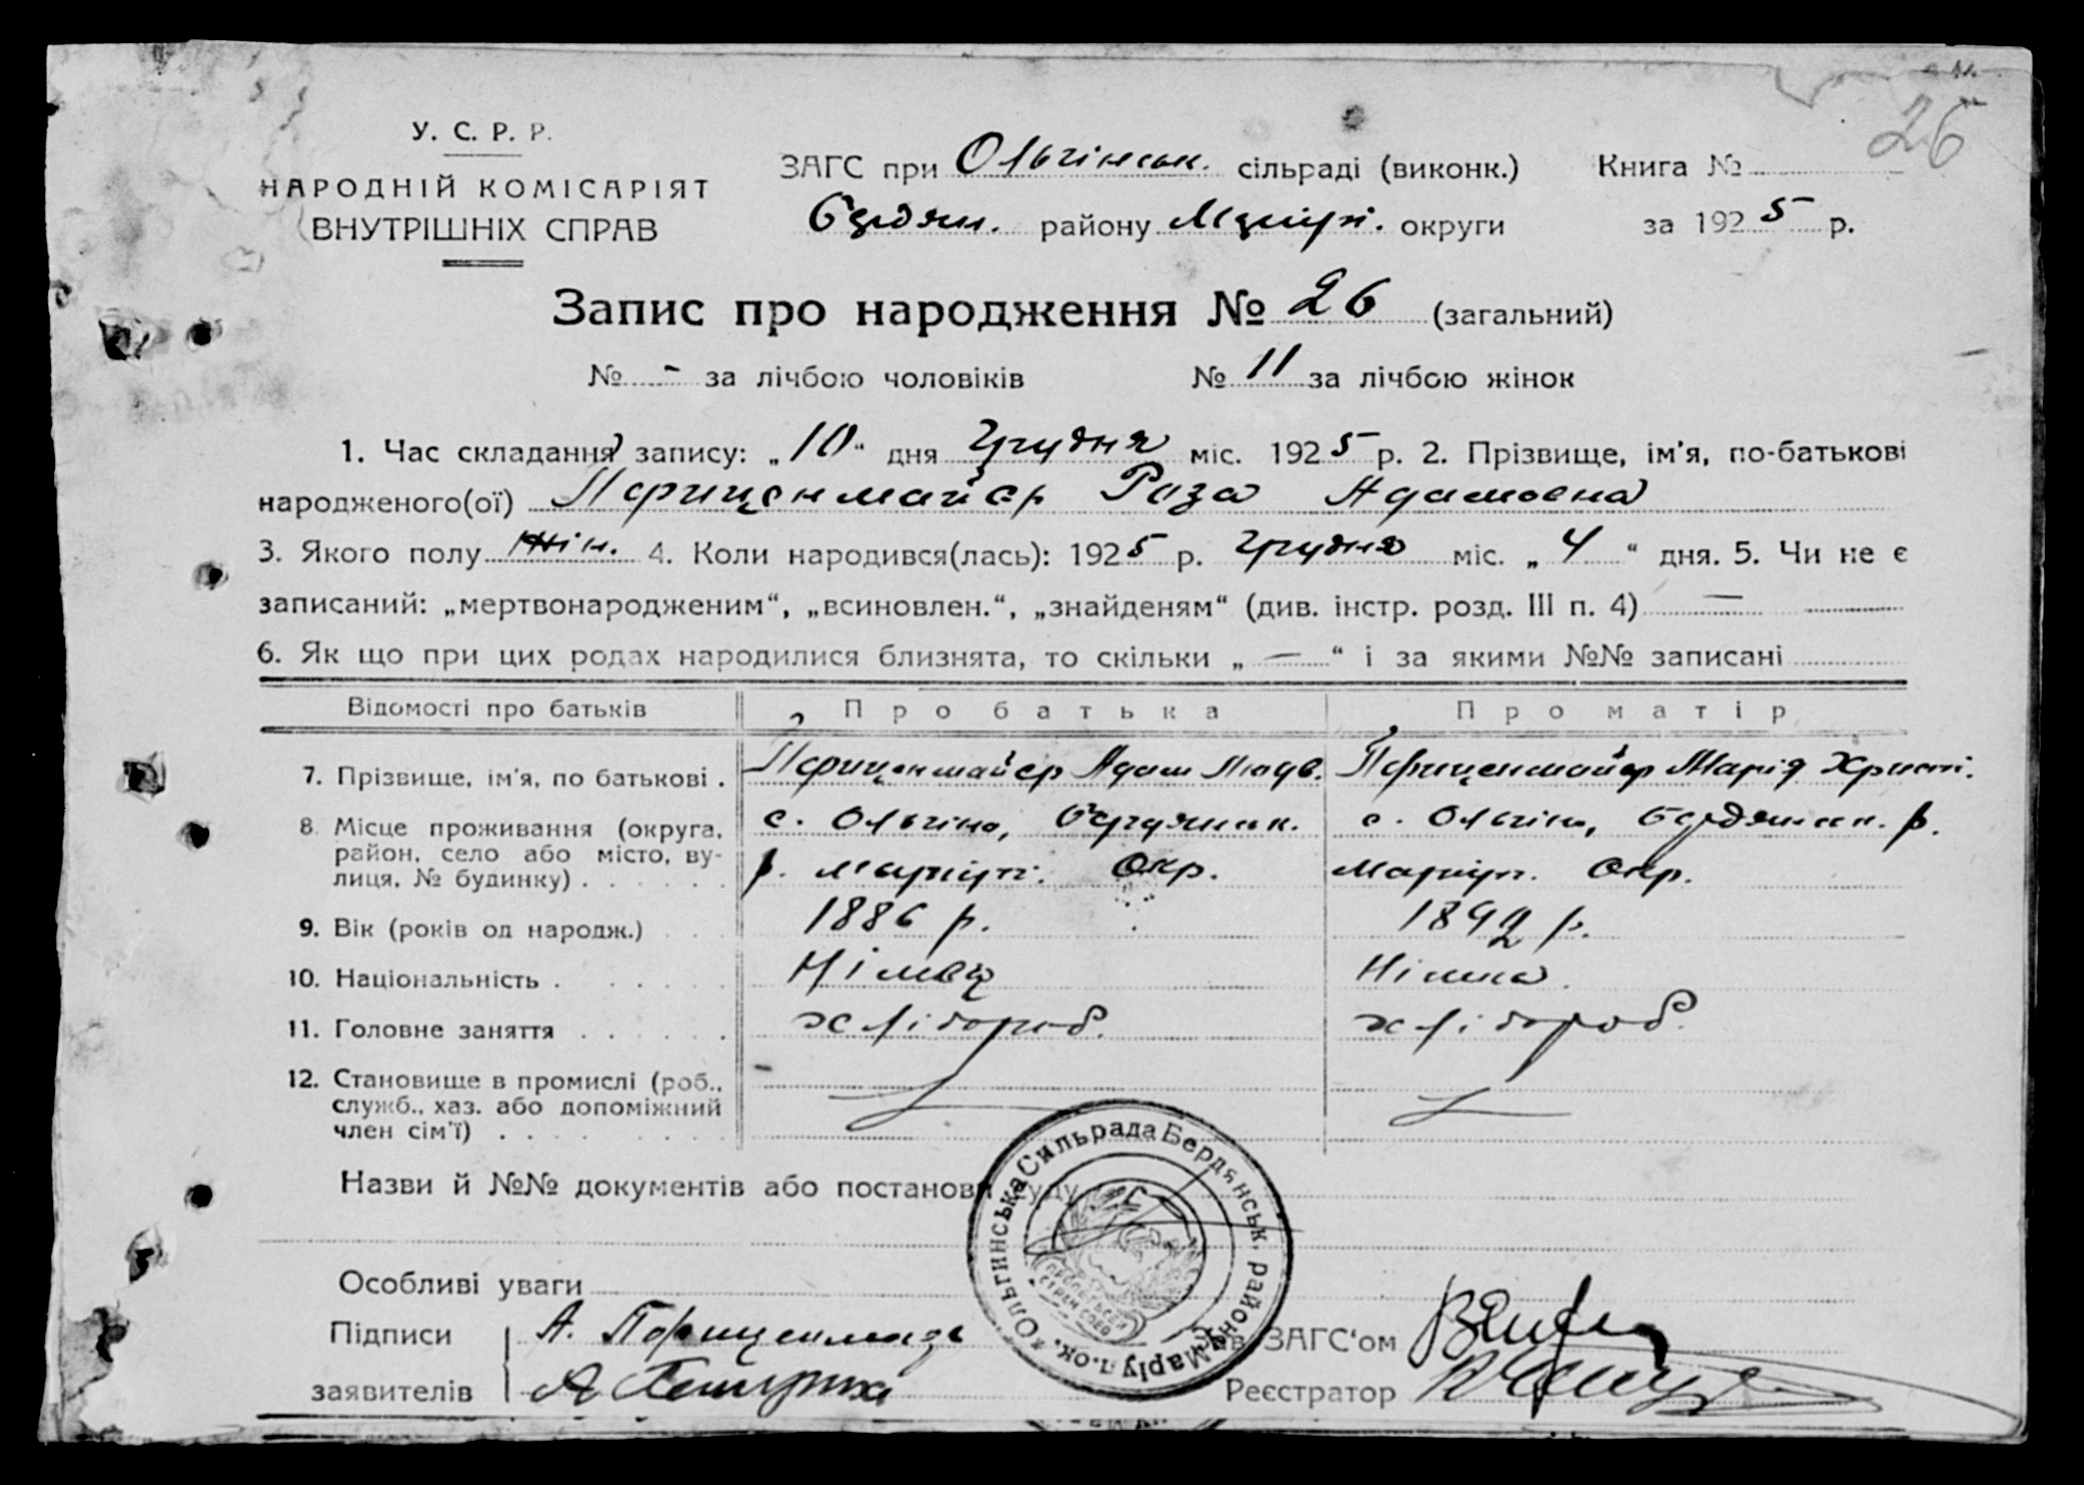 26
У. С. Р. Р.
НАРОДНІЙ КОМІСАРІЯТ
ВНУТРІШНІХ СПРАВ
ЗАГС при Ольгінськ. сільраді (виконк.) Книга №
Бердян. району Маріуп. округи за 1925 р.
Запис про народження № 26 (загальний)
№ - за лічбою чоловіків № 11 за лічбою жінок
1. Час складання запису: „10“ дня Грудня міс. 1925 р. 2. Прізвище, ім'я, по-батькові
народженого(ої) Роза Адамовна
3. Якого полу жін. 4. Коли народився(лась): 1925 р. Грудня міс. „4“ дня. 5. Чи не є
записаний: „мертвонародженим“, „всиновлен.“, „знайденям“ (див. інстр. розд. III п. 4) —
6. Як що при цих родах народилися близнята, то скільки „—“ і за якими №№ записані
Відомості про батьків Про батька Про матір
7. Прізвище, ім'я, по батькові . Адам Людв. Марія Христі.
8. Місце проживання (округа, район, село або місто, вулиця, № будинку) с. Ольгіно, Бердянськ. р. Маріуп. Окр. с. Ольгіно, Бердянськ. р. Маріуп. Окр.
9. Вік (років од народж.) 1886 р. 1892 р.
10. Національність . Німець Німка
11. Головне заняття хлібороб. хлібороб.
12. Становище в промислі (роб., служб., хаз. або допоміжний член сім'ї)
Назви й №№ документів або постанови суду
Особливі уваги
Підписи А. Зав ЗАГС'ом
заявителів А Реєстратор
Ольгинська Сильрада Бердянськ. району Маріуп.ок.